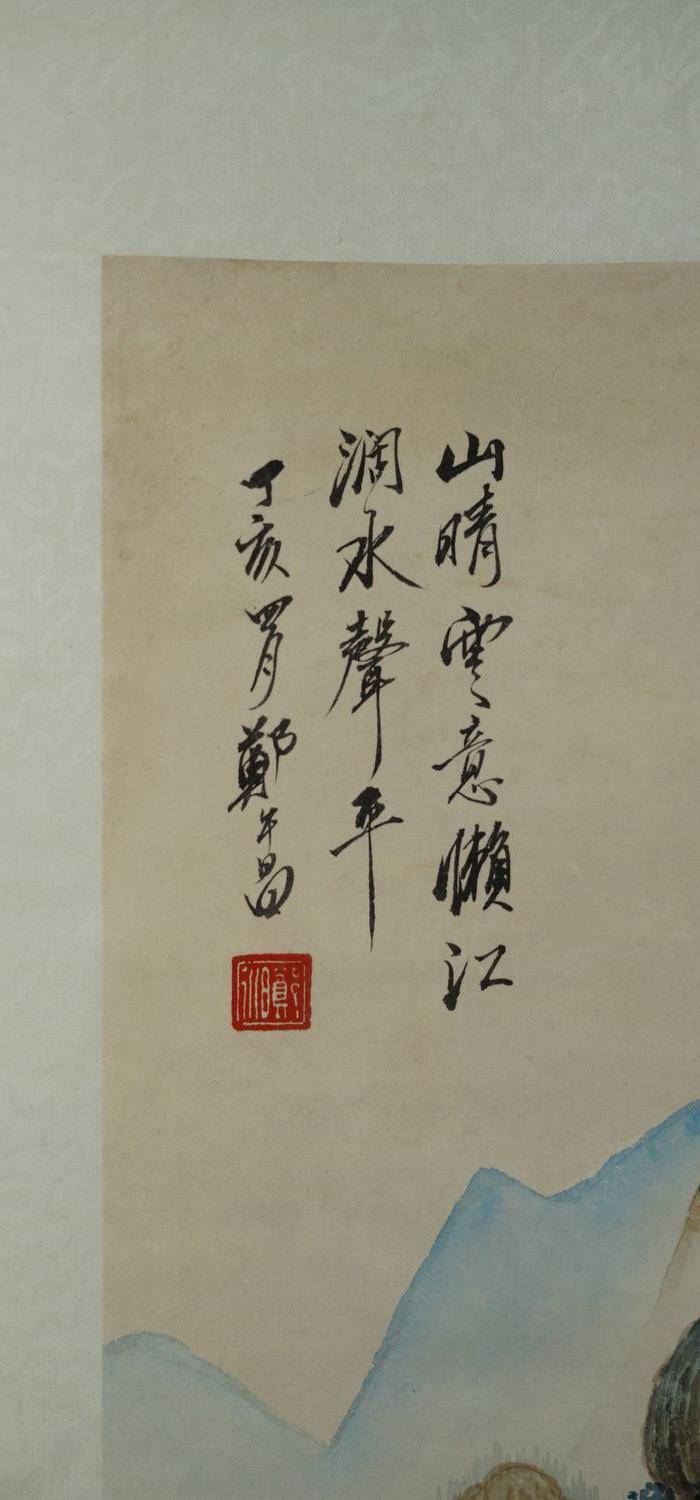 山晴雲意懶江
涸水聲平
丁亥四月鄭午昌